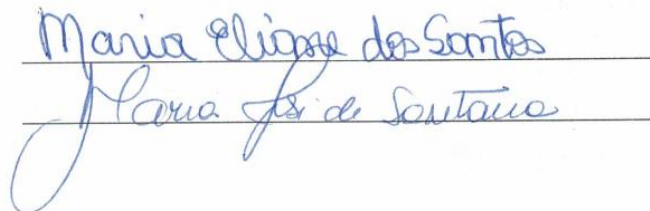 Maria Eliane dos Santos
Maria José de Santana